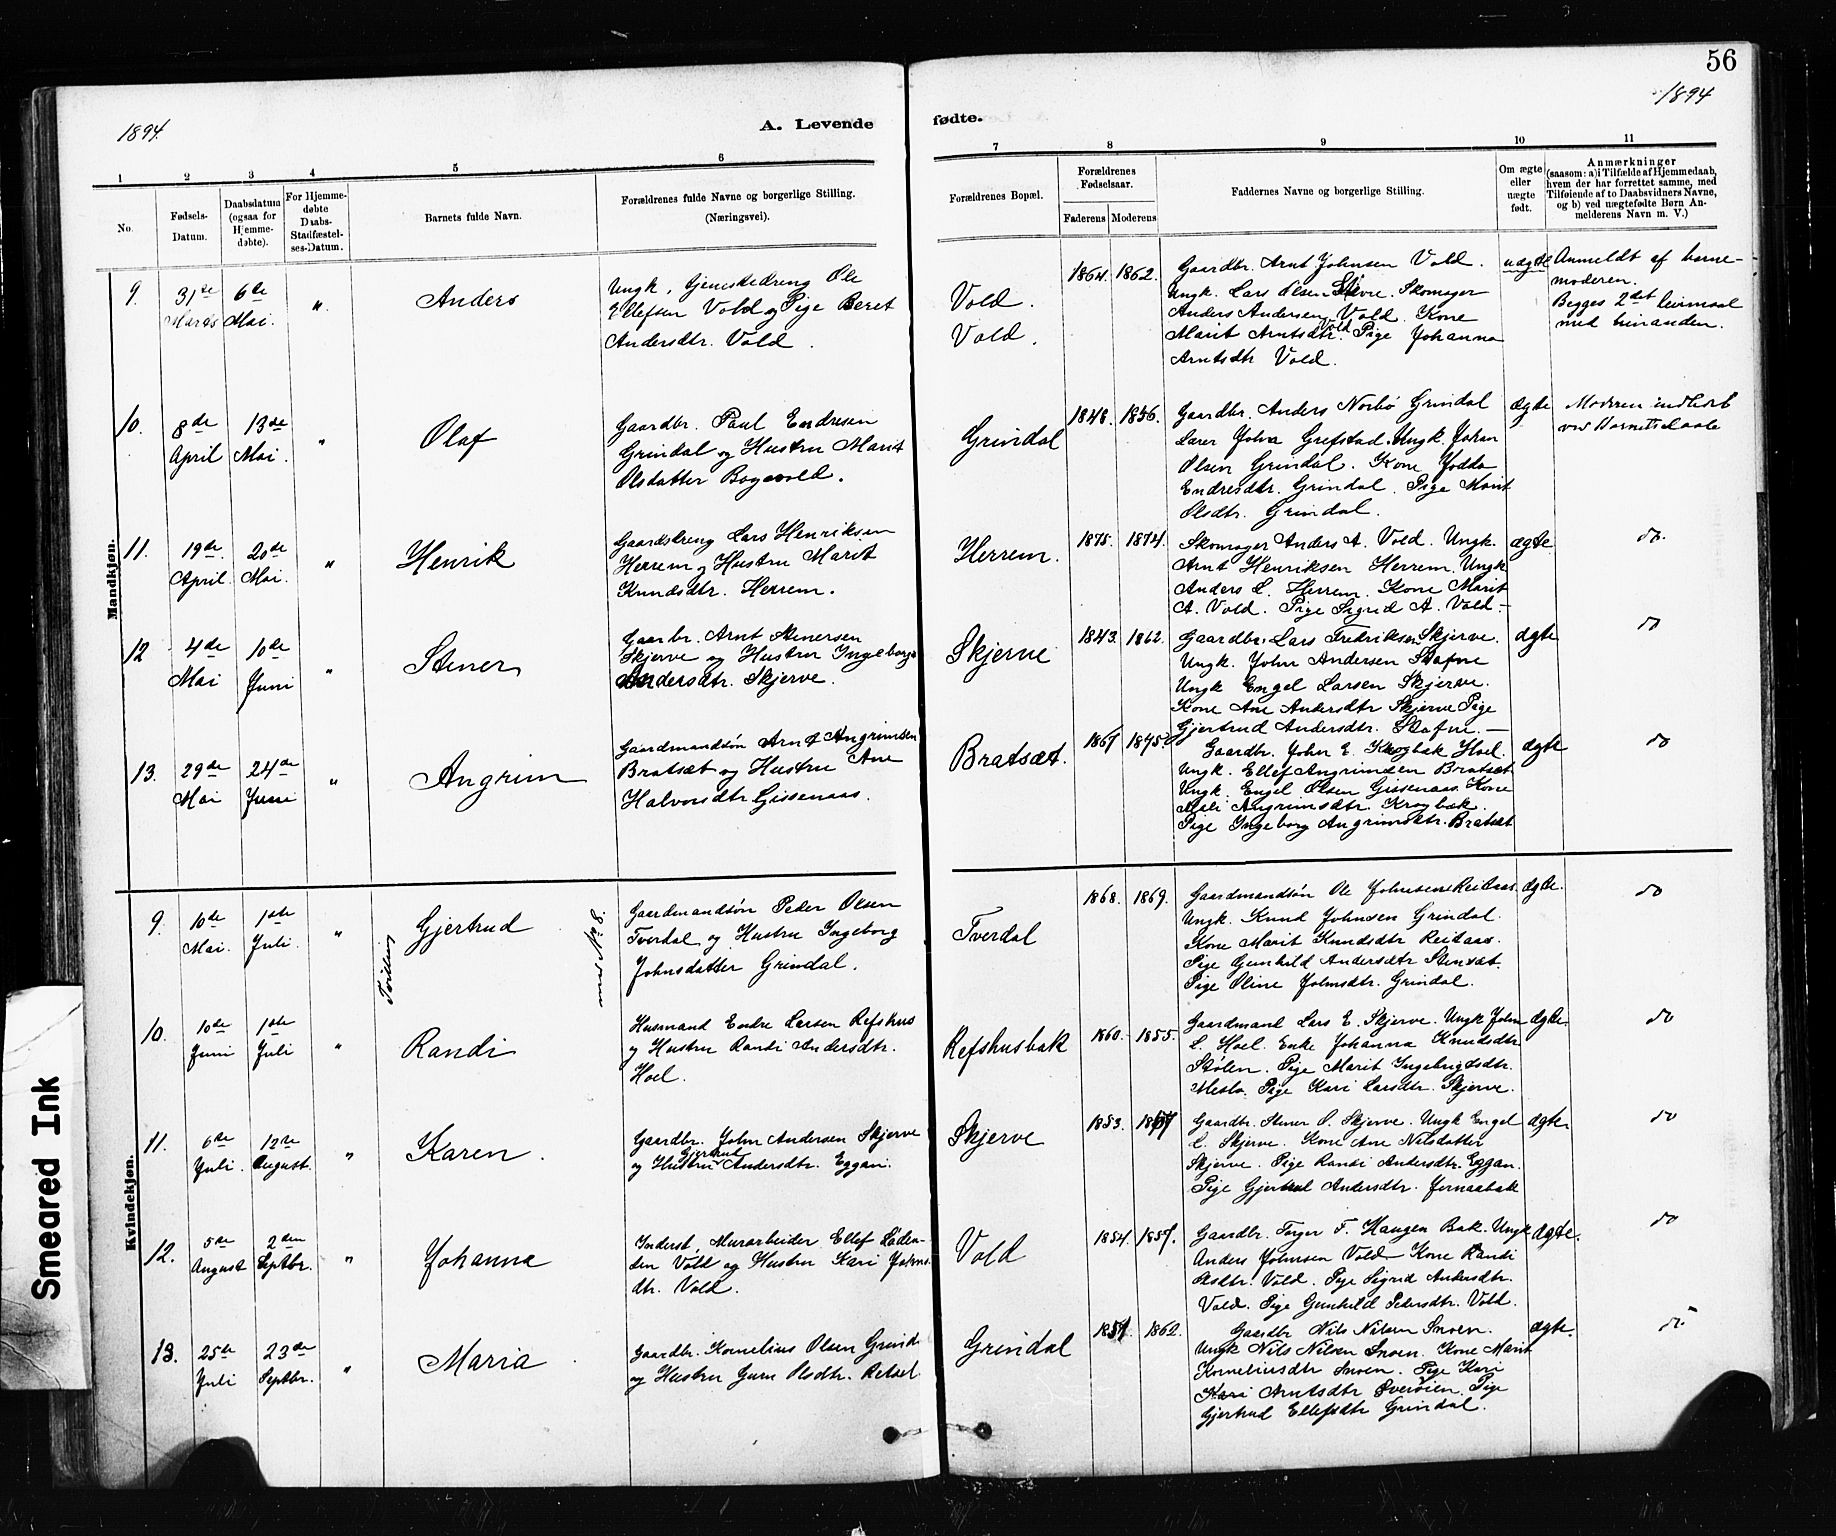 56
1894.
1894
A. Levende
fødte.
1 2 3 4 5 6
7 8 9 10 11
No.
Fødsels-
Datum.
Daabsdatum
(ogsaa for
Hjemme-
døbte).
For Hjemme-
døbte
Daabs-
Stadfæstel-
ses-Datum.
Barnets fulde Navn.
Forældrenes fulde Navne og borgerlige Stilling.
(Næringsvei).
Forældrenes Bopæl.
Forældrenes
Fødselsaar.
Faderens Moderens
Faddernes Navne og borgerlige Stilling.
Om ægte
eller
uægte
født.
Anmærkninger
(saasom: a) i Tilfælde af Hjemmedaab,
hvem der har forrettet samme, med
Tilføiende af to Daabsvidners Navne,
og b) ved uægtefødte Børn An-
melderens Navn m. V.)
Mandkjøn.
9.
31te
Marts
6te
Mai.
"
Anders
Ungk. Tjenestedreng Ole
Ellefsen Vold og Pige Beret
Andersdtr. Vold.
Vold.
Vold.
1864. 1862.
Gaardbr. Arnt Johnsen Vold.
Ungk. Lars Olsen Skjerve. Skomager
Anders Andersen Vold. Kone
Marit Arntsdtr. Vold Pige Johanna
Arntsdtr Vold.
uægte
Anmeldt af barne-
moderen.
Begges 2det leiermaal
med hinanden.
10.
8de
April
13de
Mai.
"
Olaf
Gaardbr. Paul Endresen
Grindal og Hustru Marit
Olsdatter Bogevold.
Grindal
1848. 1856.
Gaardbr. Anders Norbø Grindal
Lærer John Grefstad. Ungk. Johan
Olsen Grindal. Kone Jodda
Endresdtr. Grindal. Pige Marit
Olsdtr. Grindal.
Ægte
Moderen indledet
ved Barnets daab
11.
19de
April
20de
Mai.
"
Henrik
Gaardsdreng Lars Henriksen
Herrem og Hustru Marit
Knudsdtr. Herrem.
Herrem.
1875. 1874.
Skomager Anders A. Vold. Ungk.
Arnt Henriksen Herrem. Ungk
Anders L. Herrem. Kone Marit
A. Vold. Pige Sigrid A. Vold.
ægte.
do.
12
4de
Mai
10de
Juni
"
Stener
Gaarbr. Arnt Stenersen
Skjerve og Hustru Ingeborg
Andersdtr. Skjerve.
Skjerve
1843. 1862.
Gaardbr. Lars Fredriksen Skjerve.
Ungk. John Andersen Stafne
Ungk Engel Larsen Skjerve.
Kone Ane Andersdtr Skjerve Pige
Gjertrud Andersdtr. Stafne.
ægte
do
13.
29de
Mai
24de
Juni
"
Angrim
Gaardmandsøn Arnt Angrimsen
Bratsæt og Hustru Ane
Halvorsdtr Gissenaas.
Bratsæt.
1867 1875.
Gaardbr. John E. Krogbæk Hoel.
Ungk. Ellef Angrimsen Bratsæt
Ungk. Engel Olsen Gissenaas. Kone
Mali Angrimsdtr. Krogbæk.
Pige Ingeborg Angrimsdtr. Bratsæt
ægte
do
Kvindekjøn.
9.
10de
Mai.
1ste
Juli.
"
Gjertrud
Tvilling
med No 8.
Gaardmandsøn Peder Olsen
Tverdal og Hustru Ingeborg
Johnsdatter Grindal.
Tverdal
1868. 1869.
Gaardmandsøn Ole Johnsen Reitaas
Ungk. Knud Johnsen Grindal.
Kone Marit Knudsdtr Reitaas.
Pige Gunhild Andersdtr Stensæt.
Pige Oline Johnsdtr. Grindal.
ægte.
do
10.
10de
Juni
1ste
Juli
"
Randi
Husmand Endre Larsen Refshus
og Hustru Randi Andersdtr.
Hoel.
Refshusbak
1860. 1855.
Gaardmand Lars E. Skjerve. Ungk John
L. Hoel. Enke Johanna Knudsdtr
Stølen. Pige Marit Ingebrigtsdtr.
Meslo. Pige Kari Larsdtr. Skjerve.
ægte.
do
11.
6te
Juli.
12te
August.
"
Karen.
Gaardbr. John Andersen Skjerve
og Hustru Gjertrud Andersdtr. Eggan.
Skjerve
1853.
Gaardbr. Stener O. Skjerve. Ungk Engel
L. Skjerve. Kone Ane Nilsdatter
Skjerve. Pige Randi Andersdtr. Eggan.
Pige Gjertrud Andersdtr. Jernaabak
ægte.
do
12.
5te
August
2den
Septbr.
"
Johanna
Inderst, Murarbeider Ellef Løden-
den Vold og Hustru Kari Johns-
dtr. Vold.
Vold
1854. 1857.
Gaardbr. Torger F. Haugen Bak. Ungk
Anders Johnsen Vold. Kone Randi
Olsdtr. Vold. Pige Sigrid Andersdtr.
Vold. Pige Gunhild Pedersdtr. Vold.
ægte.
do
13.
25de
Juli
23de
Septbr.
"
Maria
Gaardbr. Kornelius Olsen Grindal
og Hustru Guru Olsdtr. Retset.
Grindal
1862.
Gaardbr Nils Nilsen Snoen.
Ungk Nils Nilsen Snoen. Kone Marit
Korneliusdtr Snoen. Pige Kari
Kari Arntsdtr Sverøien. Pige
Gjertrud Ellefsdtr Grindal.
ægte.
do
Smeared Ink